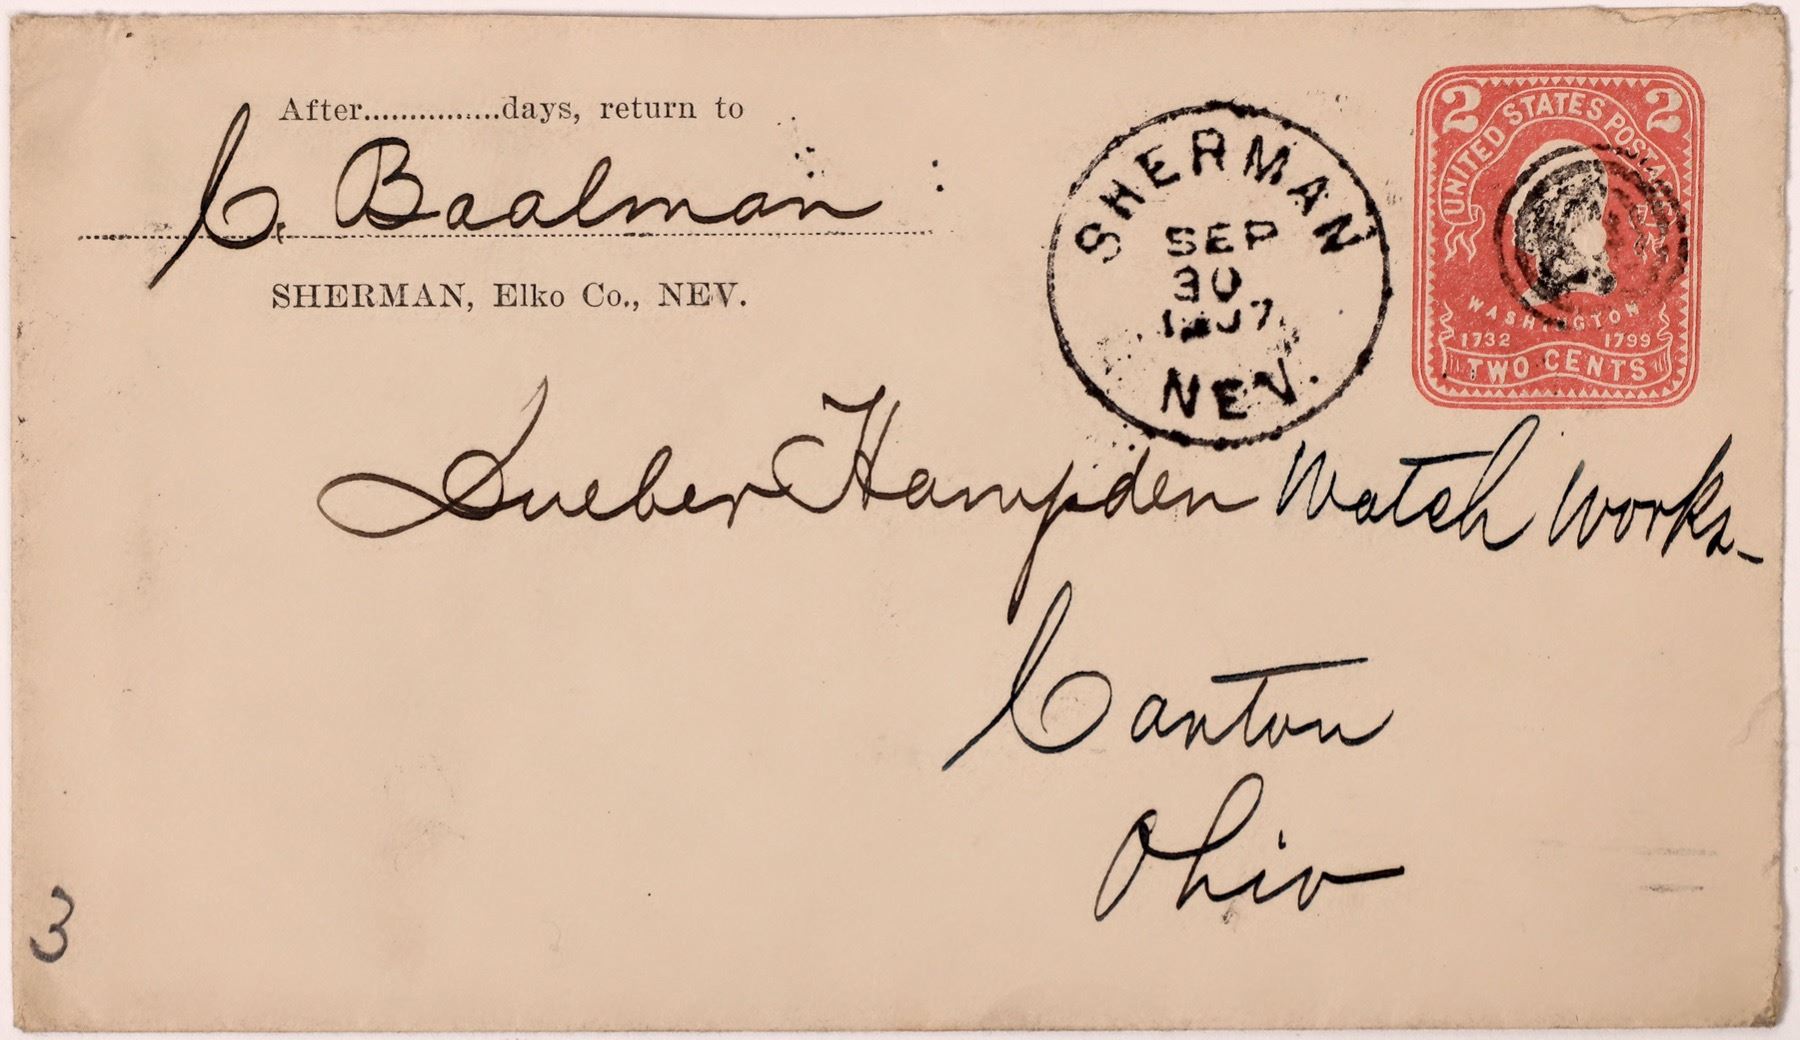 After...............days, return to
C. Baalman
SHERMAN, Elko Co., NEV.
SHERMAN
SEP
30
1907
NEV.
2 2
UNITED STATES POSTAGE
WASHINGTON
1732 1799
TWO CENTS
Dueber Hampden Watch Works
Canton
Ohio
3